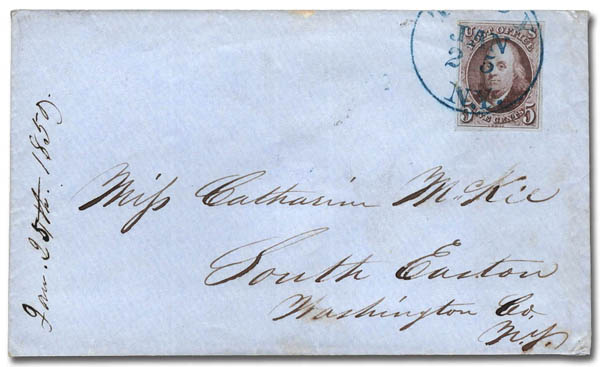 JAN
25
N.Y.
U POST OFFICE S
5 FIVE CENTS 5
Miss Catharine McKie
South Easton
Washington Co.
N.Y.
Jan. 25th. 1850.